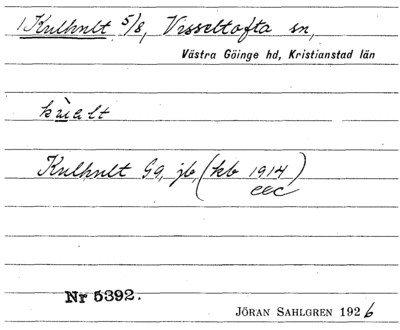 1 Kulhult 5/8, Visseltofta sn,
Västra Göinge hd, Kristianstad län
Kulhult Gg, jb, (kb 1914)
Nr 5392.
JÖRAN SAHLGREN 1926